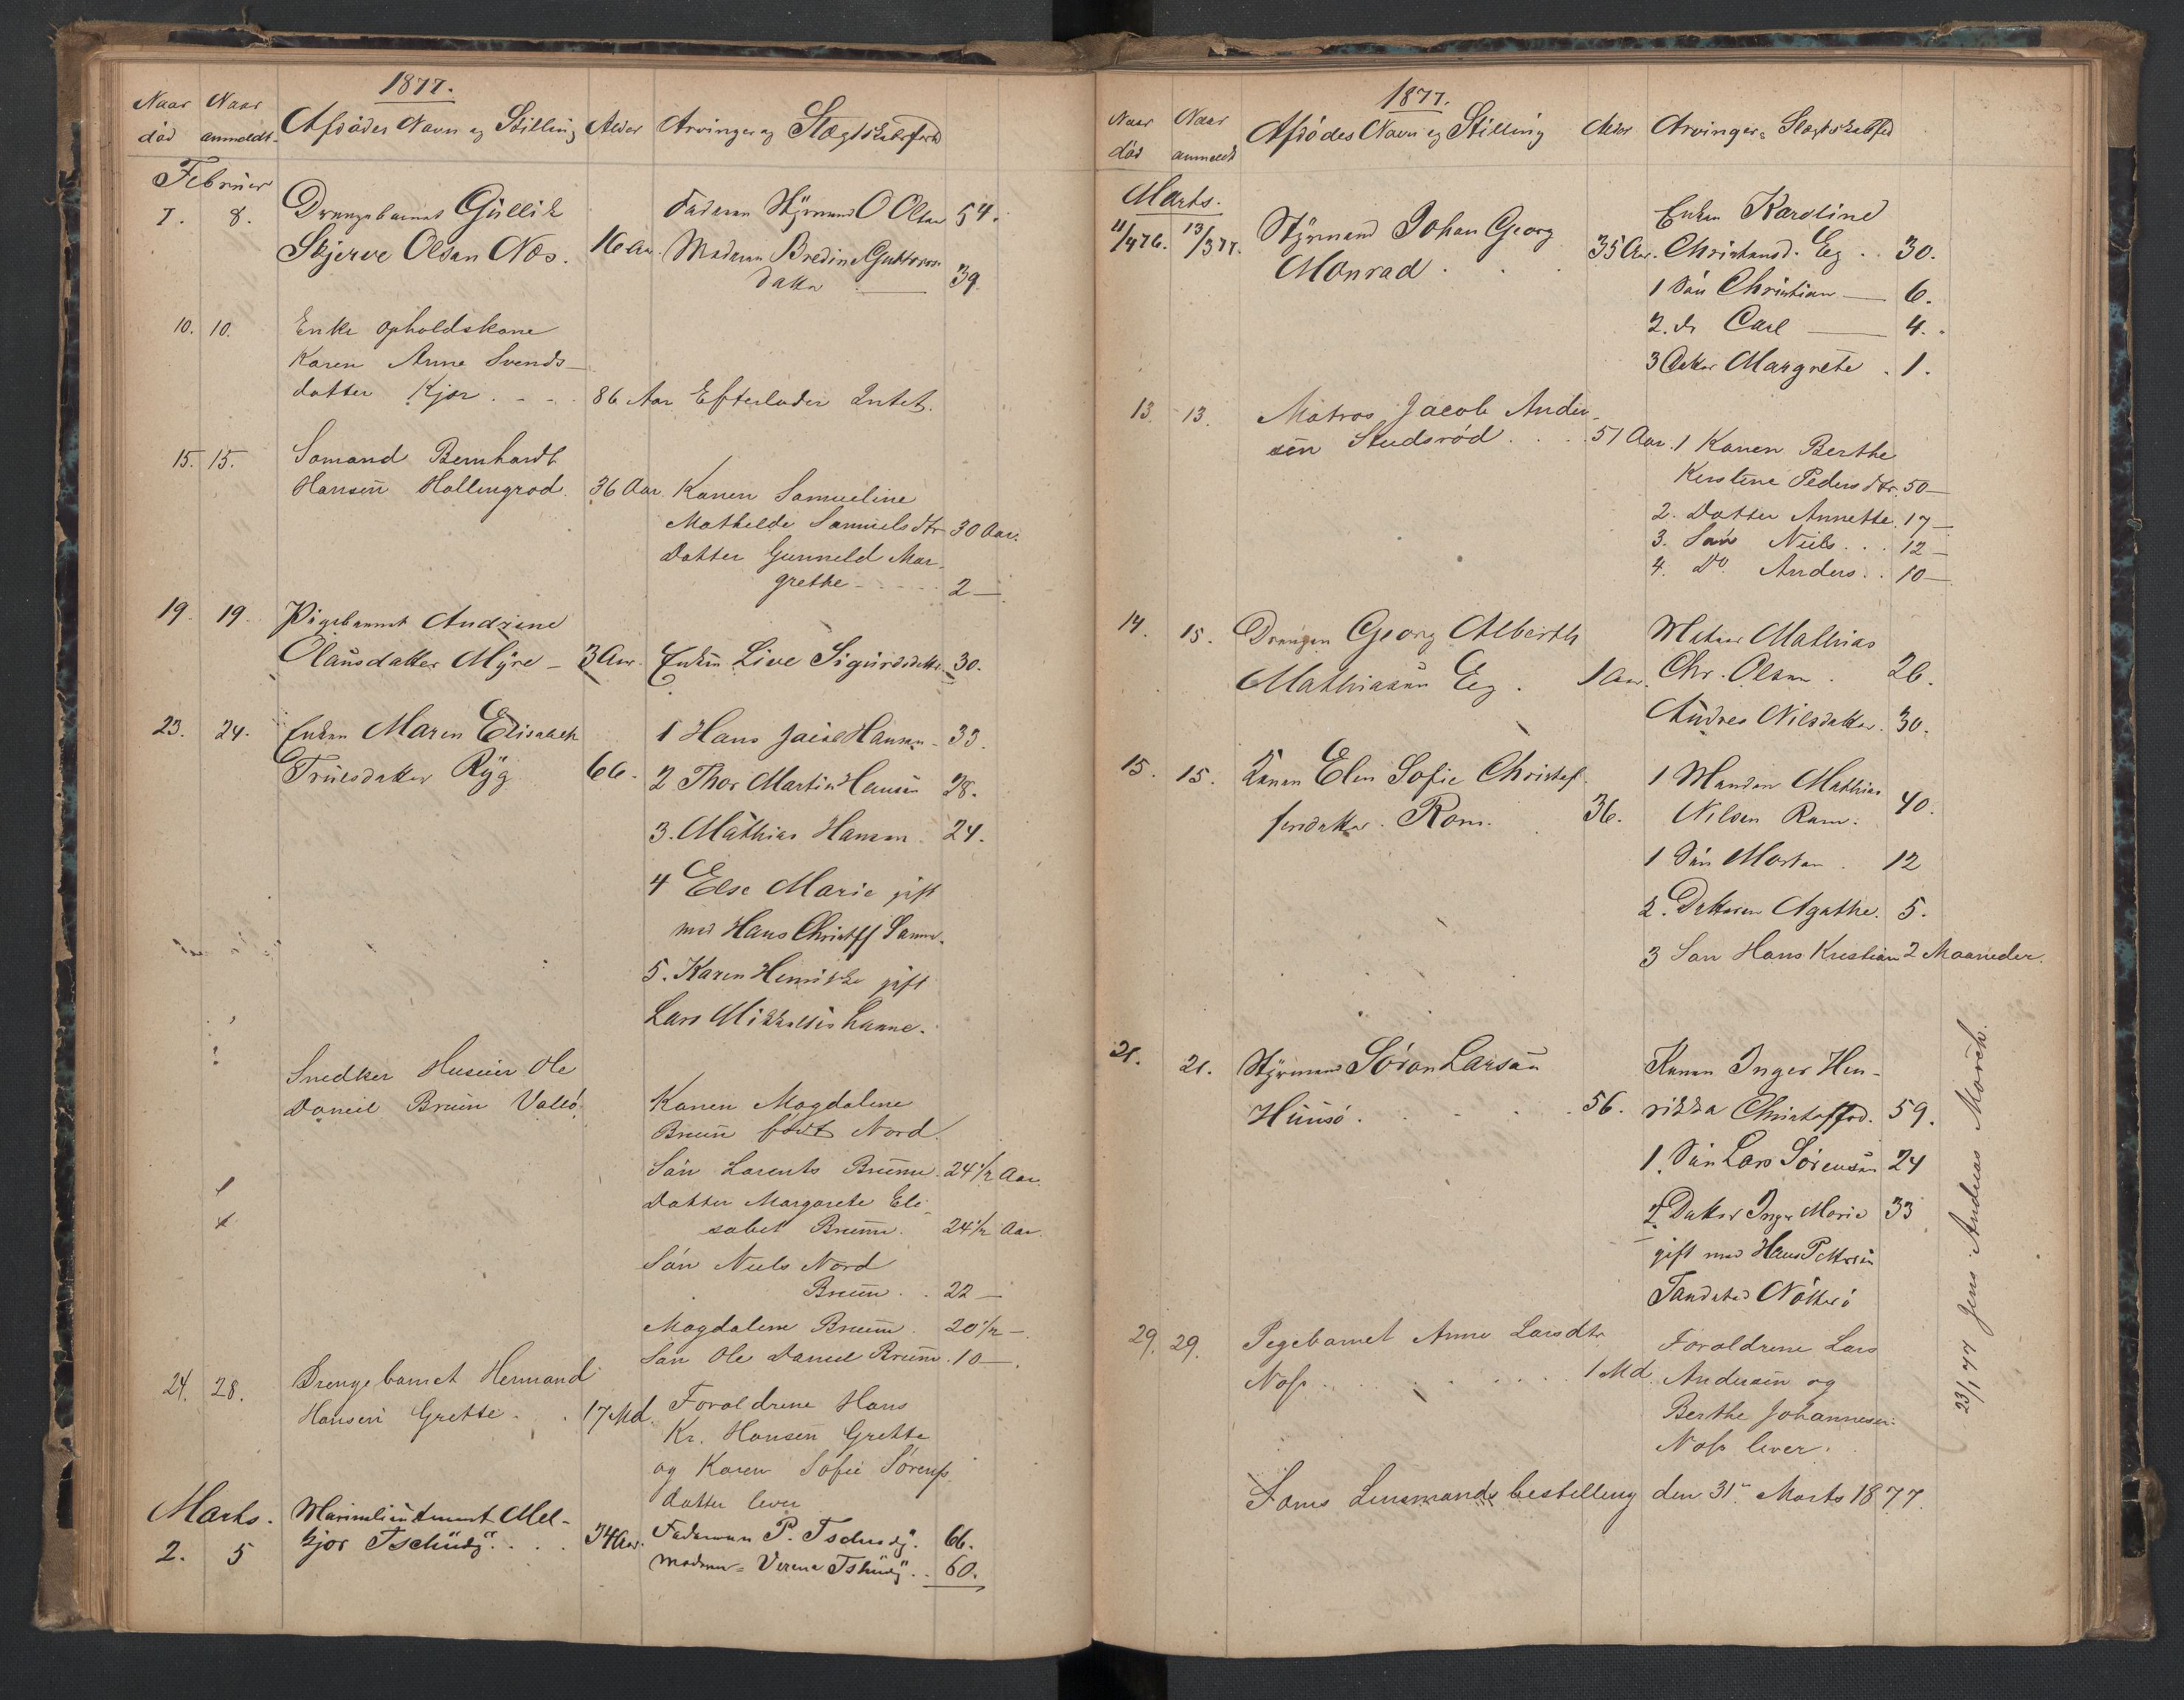 1877.
Naar Naar
død anmeldt. Afdødes Navn og Stilling Alder Arvinger og Slægtskabsforh
Februar
7. 8. Drengebarnet Gullik Faderen Styrmand O Olsen 54.
Skjerve Olsen Næs. 16 Aar. Moderen Bredine Guttorms
datter 39
10. 10. Enke opholdskone
Karen Anne Svends-
datter Kjær. 86 Aar Efterlader Intet.
15. 15. Sømand Bernhardt
Hansen Hollengrød. 36 Aar. Konen Samueline
Mathilde Samuelsdtr 30 Aar.
Datter Gunneld Mar-
grethe 2 —
19. 19. Pigebarnet Andrine
Olausdatter Myre 3 Aar. Enken Live Sigurdsdatter 30.
23. 24. Enken Maren Elisabeth 1 Hans Jacob Hansen 33.
Trulsdatter Ryg 66. 2 Thor Martin Hansen 28.
3. Mathias Hansen 24.
4 Else Marie gift
med Hans Christoff Sanne.
5. Karen Henrikke gift
Lars Mikkelsen Sanne.
Snedker Huseier Ole
Daniel Bruun Vallø. Konen Magdalene
Bruun født Nord.
Søn Larents Bruun 24 1/2 Aar.
Datter Margarete Eli-
sabet Bruun. 24 1/2 Aar.
Søn Niels Nord
Bruun. 22 —
Magdalene Bruun 20 1/2 —
Søn Ole Daniel Bruun. 10 —
24. 28. Drengebarnet Hermand
Hansen Grette. 17 Md. Forældrene Hans
Kr. Hansen Grette
og Karen Sofie Sørens
datter lever
Marts. Marinelieutenant Mel-
2. 5 kjor Tschudy. 34 Aar. Faderen P. Tschudy. 66.
Moderen Verena Tschudy. 60.
1877.
Naar Naar
død anmeldt Afdødes Navn og Stilling Alder Arvinger & Slægtskabsfo
Marts. Enken Karoline
11/4 76. 13/3 77. Styrmand Johan Georg 35 Aar. Christensd. Eg 30.
Monrad. 1 Søn Christian 6.
2. do Carl 4.
3 Datter Margrete 1.
13. 13. Matros Jacob Ander-
sen Studsrød 51 Aar. 1 Konen Berthe
Kerstine Pedersdtr. 50 —
2. Datter Annette. 17 —
3. Søn Niels 12 —
4. Do Anders 10 —
14. 15. Drengen Georg Alberth Matros Mathias
Mathiasen Eg. 1 Aar. Chr. Olsen 26.
Andrea Nilsdatter. 30.
15. 15. Konen Elen Sofie Christof- 1 Manden Mathias
fersdatter Ram. 36. Nilsen Ram. 40.
1 Søn Morten 12
2. Datteren Agathe. 5.
3 Søn Hans Kristian 2 Maaneder.
21. 21. Styrmand Søren Larsen Konen Inger Hen-
Husø 56. rikka Christoffd. 59.
1. Søn Lars Sørensen 24
2. Datter Inger Marie 33
gift med Hans Pettersen
Tandstad Nøtterø
29. 29. Pigebarnet Anne Larsdtr Forældrene Lars
Næss 1 Md. Andersen og
Berthe Johannesen
Næss lever.
Sems Lensmandsbestilling den 31te Marts 1877.
23/1 77 Jens Andreas Morch.